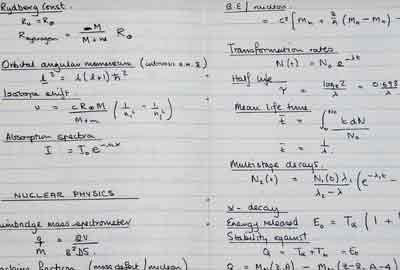 Rydberg Const.
R₀ = R∞
R hydrogen = M / M+m R∞
Orbital angular momentum
l² = l(l+1)ħ²
Isotope shift.
ν = cR∞M / M+m (1/n₁² - 1/n₂²)
Absorption spectra
I = I₀e
NUCLEAR PHYSICS
mass spectrometer
q/m =
(mass defect / nucleon)
B.E / nucleon
= c² [Mₙ + (Mₘ - Mₙ) -
Transformation rates.
N(t) = N₀e^-λt
Half life
τ = logₑ2 / λ = 0.693 / λ
Mean life time
t̄ = ∫ t dN / N₀
t̄ = 1/λ
Multistage decays.
N₂(t) = N₁(0)λ₁ / λ₂ - λ₁ (e^-λ₁t -
α - decay
Energy released E₀ = Tα (1 +
Stability against
Q = Tα + = E₀
Q = (Z,A) - (Z-2, A-4)